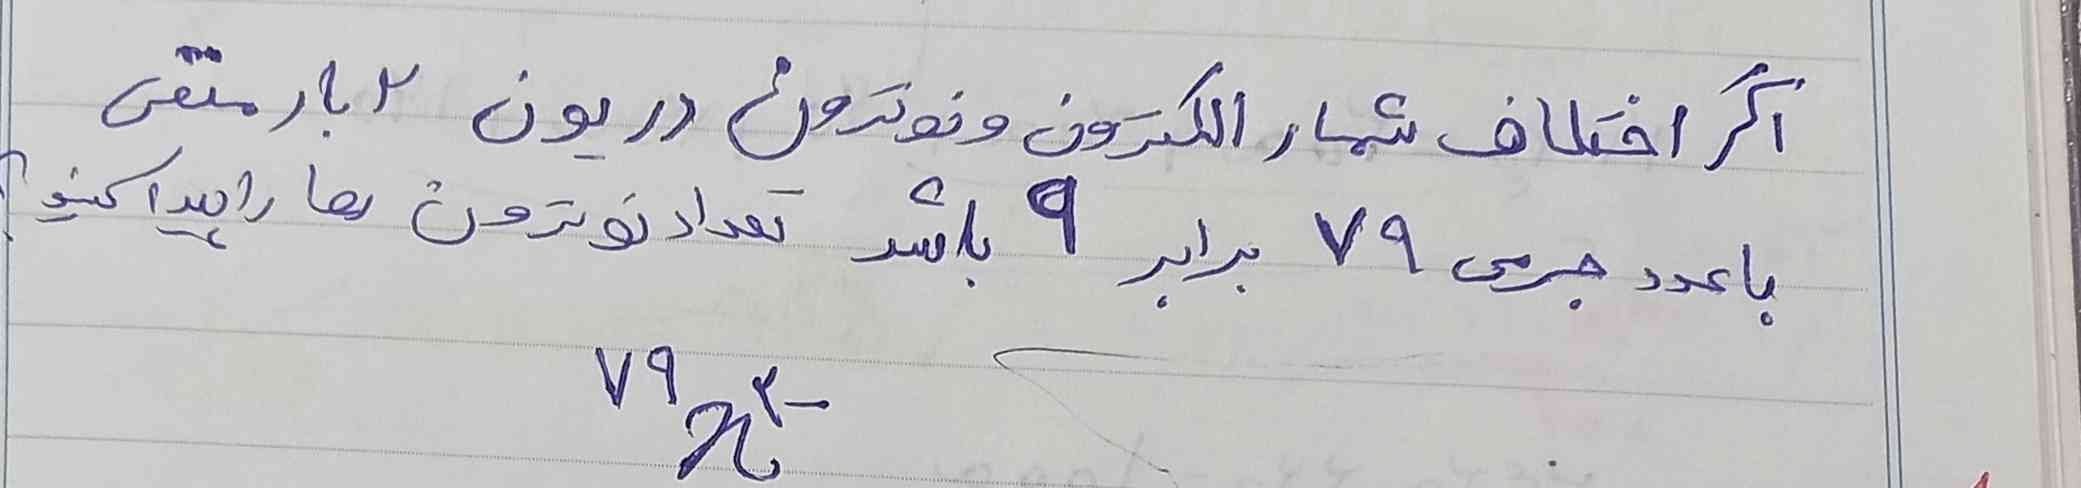 اگر اختلاف شمار الکترون و نوترون در یون ۲ بار منفی
با عدد جرمی ۷۹ برابر ۹ باشد تعداد نوترون ها را پیدا کنید؟
۷۹x۲-